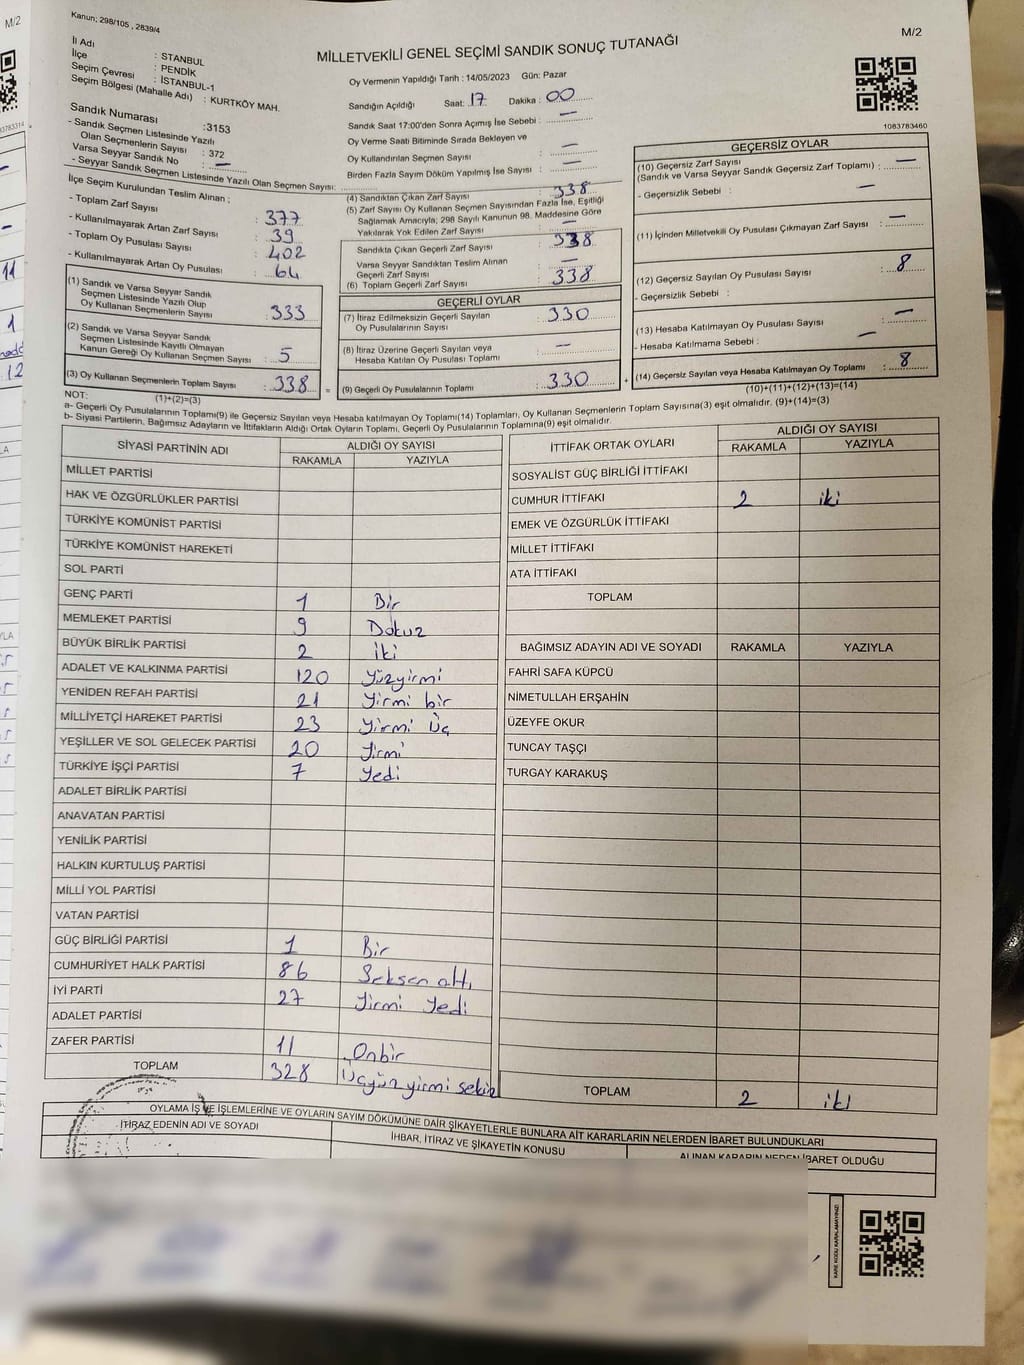 Kanun; 298/105 , 2839/4
M/2
MİLLETVEKİLİ GENEL SEÇİMİ SANDIK SONUÇ TUTANAĞI
İl Adı : STANBUL
İlçe : PENDİK
Seçim Çevresi : İSTANBUL-1
Seçim Bölgesi (Mahalle Adı) : KURTKÖY MAH.
Sandık Numarası :3153
- Sandık Seçmen Listesinde Yazılı
Olan Seçmenlerin Sayısı : 372
Varsa Seyyar Sandık No : —
- Seyyar Sandık Seçmen Listesinde Yazılı Olan Seçmen Sayısı:
Oy Vermenin Yapıldığı Tarih : 14/05/2023 Gün: Pazar
Sandığın Açıldığı Saat: 17 Dakika : 00
Sandık Saat 17:00'den Sonra Açımış İse Sebebi : —
Oy Verme Saati Bitiminde Sırada Bekleyen ve
Oy Kullandırılan Seçmen Sayısı : —
Birden Fazla Sayım Döküm Yapılmış İse Sayısı : —
1083783460
İlçe Seçim Kurulundan Teslim Alınan ;
- Toplam Zarf Sayısı : 377
- Kullanılmayarak Artan Zarf Sayısı : 39
- Toplam Oy Pusulası Sayısı : 402
- Kullanılmayarak Artan Oy Pusulası : 64
(1) Sandık ve Varsa Seyyar Sandık
Seçmen Listesinde Yazılı Olup
Oy Kullanan Seçmenlerin Sayısı : 333
(2) Sandık ve Varsa Seyyar Sandık
Seçmen Listesinde Kayıtlı Olmayan
Kanun Gereği Oy Kullanan Seçmen Sayısı : 5
(3) Oy Kullanan Seçmenlerin Toplam Sayısı : 338 =
(1)+(2)=(3)
(4) Sandıktan Çıkan Zarf Sayısı : 338
(5) Zarf Sayısı Oy Kullanan Seçmen Sayısından Fazla İse, Eşitliği
Sağlamak Amacıyla; 298 Sayılı Kanunun 98. Maddesine Göre
Yakılarak Yok Edilen Zarf Sayısı : —
Sandıkta Çıkan Geçerli Zarf Sayısı : 338
Varsa Seyyar Sandıktan Teslim Alınan
Geçerli Zarf Sayısı : —
(6) Toplam Geçerli Zarf Sayısı : 338
GEÇERLİ OYLAR
(7) İtiraz Edilmeksizin Geçerli Sayılan
Oy Pusulalarının Sayısı : 330
(8) İtiraz Üzerine Geçerli Sayılan veya
Hesaba Katılan Oy Pusulası Toplamı : —
(9) Geçerli Oy Pusulalarının Toplamı : 330 +
GEÇERSİZ OYLAR
(10) Geçersiz Zarf Sayısı
(Sandık ve Varsa Seyyar Sandık Geçersiz Zarf Toplamı) : —
- Geçersizlik Sebebi : —
(11) İçinden Milletvekili Oy Pusulası Çıkmayan Zarf Sayısı : —
(12) Geçersiz Sayılan Oy Pusulası Sayısı : 8
- Geçersizlik Sebebi :
(13) Hesaba Katılmayan Oy Pusulası Sayısı : —
- Hesaba Katılmama Sebebi : —
(14) Geçersiz Sayılan veya Hesaba Katılmayan Oy Toplamı : 8
(10)+(11)+(12)+(13)=(14)
NOT:
a- Geçerli Oy Pusulalarının Toplamı(9) ile Geçersiz Sayılan veya Hesaba katılmayan Oy Toplamı(14) Toplamları, Oy Kullanan Seçmenlerin Toplam Sayısına(3) eşit olmalıdır. (9)+(14)=(3)
b- Siyasi Partilerin, Bağımsız Adayların ve İttifakların Aldığı Ortak Oyların Toplamı, Geçerli Oy Pusulalarının Toplamına(9) eşit olmalıdır.
SİYASİ PARTİNİN ADI ALDIĞI OY SAYISI
RAKAMLA YAZIYLA
MİLLET PARTİSİ
HAK VE ÖZGÜRLÜKLER PARTİSİ
TÜRKİYE KOMÜNİST PARTİSİ
TÜRKİYE KOMÜNİST HAREKETİ
SOL PARTİ
GENÇ PARTİ 1 Bir
MEMLEKET PARTİSİ 9 Dokuz
BÜYÜK BİRLİK PARTİSİ 2 iki
ADALET VE KALKINMA PARTİSİ 120 yüzyirmi
YENİDEN REFAH PARTİSİ 21 yirmi bir
MİLLİYETÇİ HAREKET PARTİSİ 23 yirmi Üç
YEŞİLLER VE SOL GELECEK PARTİSİ 20 yirmi
TÜRKİYE İŞÇİ PARTİSİ 7 yedi
ADALET BİRLİK PARTİSİ
ANAVATAN PARTİSİ
YENİLİK PARTİSİ
HALKIN KURTULUŞ PARTİSİ
MİLLİ YOL PARTİSİ
VATAN PARTİSİ
GÜÇ BİRLİĞİ PARTİSİ 1 Bir
CUMHURİYET HALK PARTİSİ 86 Seksen altı
İYİ PARTİ 27 yirmi yedi
ADALET PARTİSİ
ZAFER PARTİSİ 11 Onbir
TOPLAM 328 Üçyüz yirmi sekiz
İTTİFAK ORTAK OYLARI ALDIĞI OY SAYISI
RAKAMLA YAZIYLA
SOSYALİST GÜÇ BİRLİĞİ İTTİFAKI
CUMHUR İTTİFAKI 2 iki
EMEK VE ÖZGÜRLÜK İTTİFAKI
MİLLET İTTİFAKI
ATA İTTİFAKI
TOPLAM
BAĞIMSIZ ADAYIN ADI VE SOYADI RAKAMLA YAZIYLA
FAHRİ SAFA KÜPCÜ
NİMETULLAH ERŞAHİN
ÜZEYFE OKUR
TUNCAY TAŞÇI
TURGAY KARAKUŞ
TOPLAM 2 iki
OYLAMA İŞ VE İŞLEMLERİNE VE OYLARIN SAYIM DÖKÜMÜNE DAİR ŞİKAYETLERLE BUNLARA AİT KARARLARIN NELERDEN İBARET BULUNDUKLARI
İTİRAZ EDENİN ADI VE SOYADI
İHBAR, İTİRAZ VE ŞİKAYETİN KONUSU
ALINAN KARARIN NEDEN İBARET OLDUĞU
KARE KODU KARALAMAYINIZ!